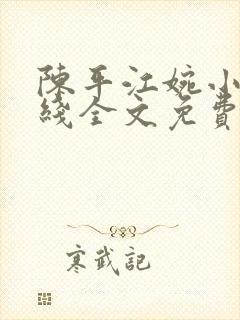 陳平江婉小
綫全文免費
寒武記